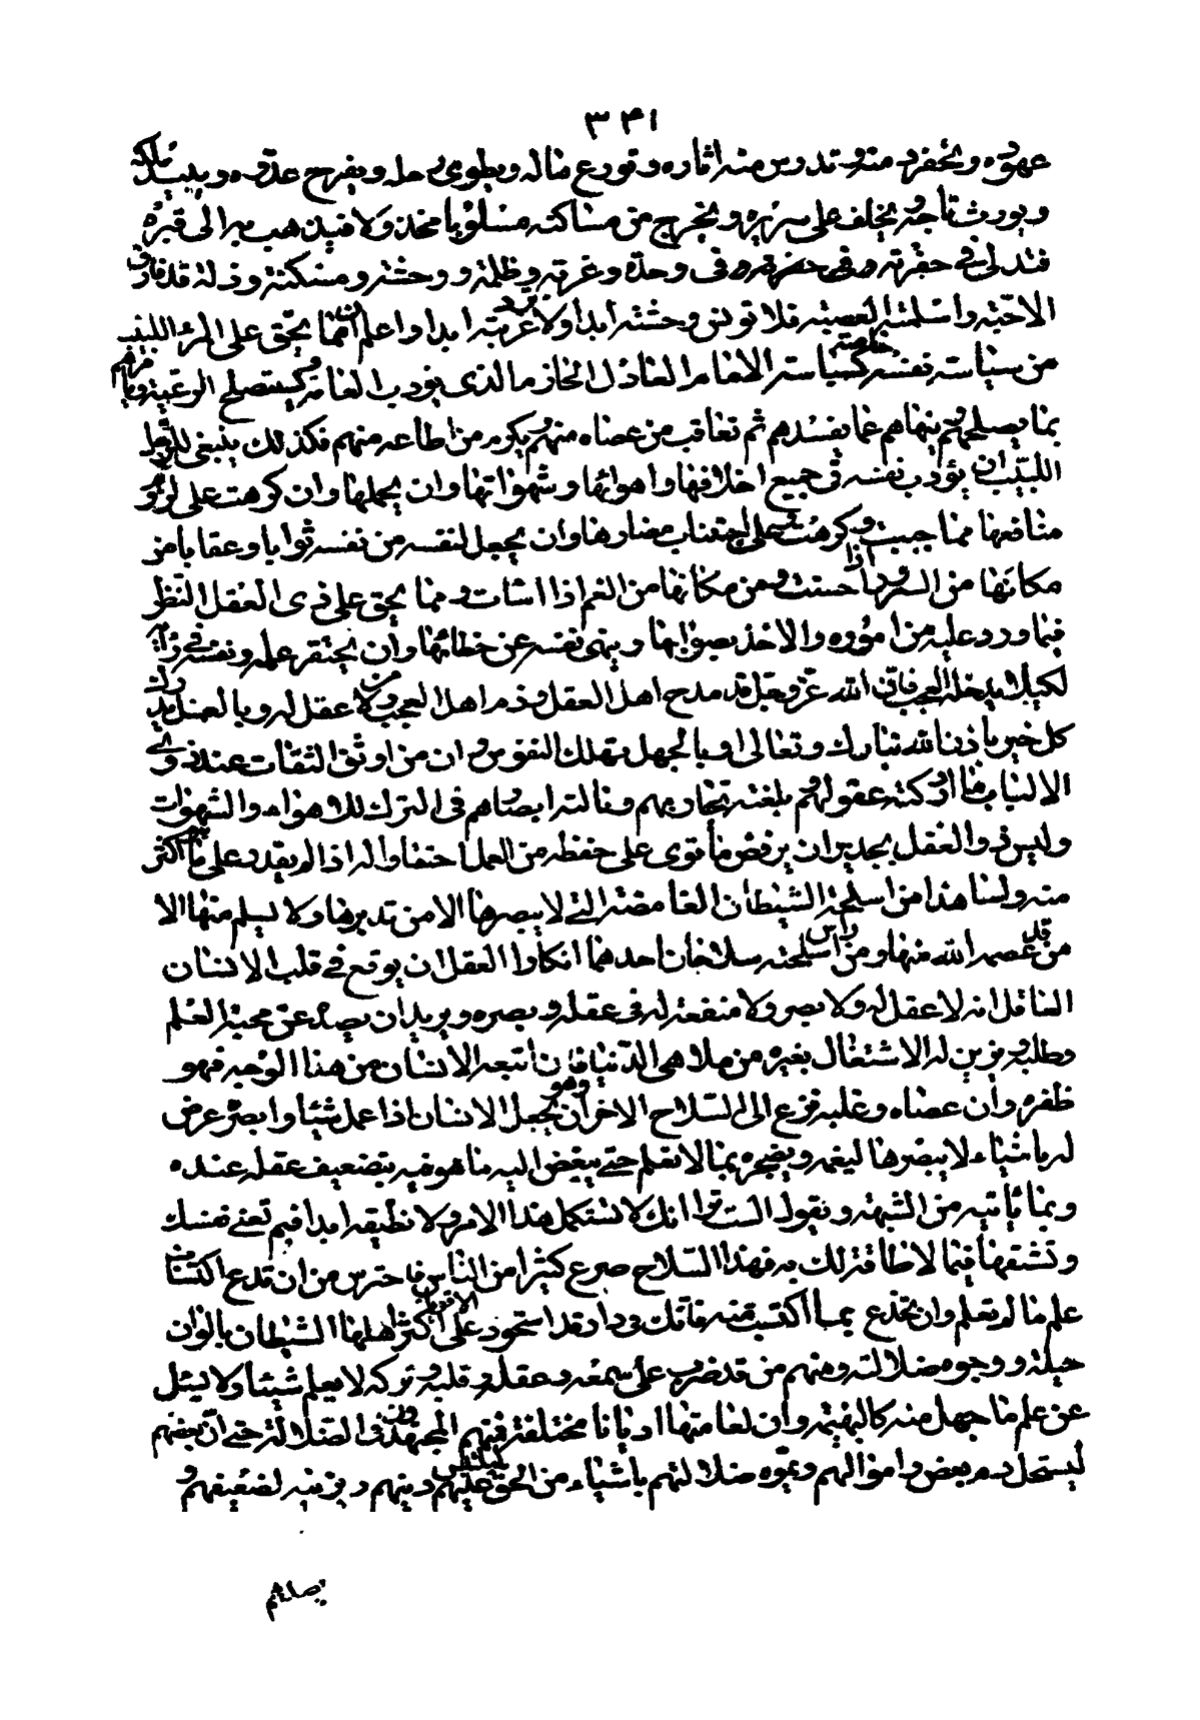 ٣٤١
عهوده ويخفر ذمته وتدرس منه اثاره وتوزع ماله ويطوى رحله ويفرح عدوه ويبيد ملكه
ويورث تاجه ويخلف على سريره ويخرج من مساكنه مسلوبا مخذولا فيذهب به الى قبره
فيدلى فى حفرته فى وحدة وغربة وظلمة ووحشة ومسكنة وذلة قد فارق
الاحبة واسلمته العصبة فلا تونس وحشته ابدا ولا ترد غربته ابدا واعلم ان مما يحق على المرء اللبيب
من سياسة نفسه خاصة كسياسة الامام العادل الحازم الذى يؤدب العامة ويستصلح الرعية ويأمرهم
بما يصلحهم وينهاهم عما يفسدهم ثم يعاقب من عصاه منهم ويكرم من اطاعه منهم فكذلك ينبغى للرجل
اللبيب ان يؤدب نفسه فى جميع اخلاقها واهوائها وشهواتها وان يحملها وان كرهت على لزوم
منافعها مما احبت وكرهت وعلى اجتناب مضارها وان يجعل لنفسه من نفسه ثوابا وعقابا من
مكانها من السرور اذا احسنت ومن مكانها من الغم اذا اساءت ومما يحق على ذى العقل النظر
فيما ورد عليه من اموره والاخذ بصوابها وينهى نفسه عن خطائها وان يحتقر عمله ونفسه فى رأيه
لكيلا يدخله العجب فان الله عز وجل قد مدح اهل العقل وذم اهل العجب ومن لا عقل له وبالعقل يدرك
كل خير باذن الله تبارك وتعالى وبالجهل تهلك النفوس وان من اوثق الثقات عند ذوى
الالباب ما ادركته عقولهم وبلغته تجاربهم ونالته ابصارهم فى الترك للاهواء والشهوات
وليس ذو العقل بجدير ان يرفض ما قوى على حفظه من العمل احتقارا له اذا لم يقدر على ما هو اكثر
منه وانما هذا من اسلحة الشيطان الغامضة التى لا يبصرها الا من تدبرها ولا يسلم منها الا
من عصمه الله منها ومن رأس اسلحته سلاحان احدهما انكار العقل ان يوقع فى قلب الانسان
العاقل انه لا عقل له ولا بصر ولا منفعة له فى عقله وبصره ويريد ان يصده عن محبة العلم
وطلبه ويزين له الاشتغال بغيره من ملاهى الدنيا فان اتبعه الانسان من هذا الوجه فهو
ظفره وان عصاه وغلبه فزع الى السلاح الاخر وهو ان يجعل الانسان اذا عمل شيئا وابصر عرض
له باشياء لا يبصرها ليغمه ويضجره بما لا يعلم حتى يبغض اليه ما هو فيه بتضعيف عقله عنده
وبما يأتيه من الشبهة ويقول الست ترى انك لا تستكمل هذا الامر ولا تطيقه ابدا فبم تعنى نفسك
وتشقها فيما لا طاقة لك به فبهذا السلاح صرع كثيرا من الناس فاحترس من ان تدع اكتساب
علم ما لم تعلم وان تخدع عما اكتسبت منه فانك فى دار قد استحوذ على اكثر اهلها الشيطان بالوان
حيلته ووجوه ضلالته ومنهم من قد ضرب على سمعه وعقله وقلبه وتركه لا يعلم شيئا ولا يسئل
عن علم ما جهل منه كالبهيمة وان لعامتها اديانا مختلفة فمنهم المجتهدون فى الضلالة حتى ان بعضهم
ليستحل دم بعض واموالهم ويموه ضلالتهم باشياء من الحق ليلبس عليهم دينهم ويزينه لضعيفهم و
يصدهم